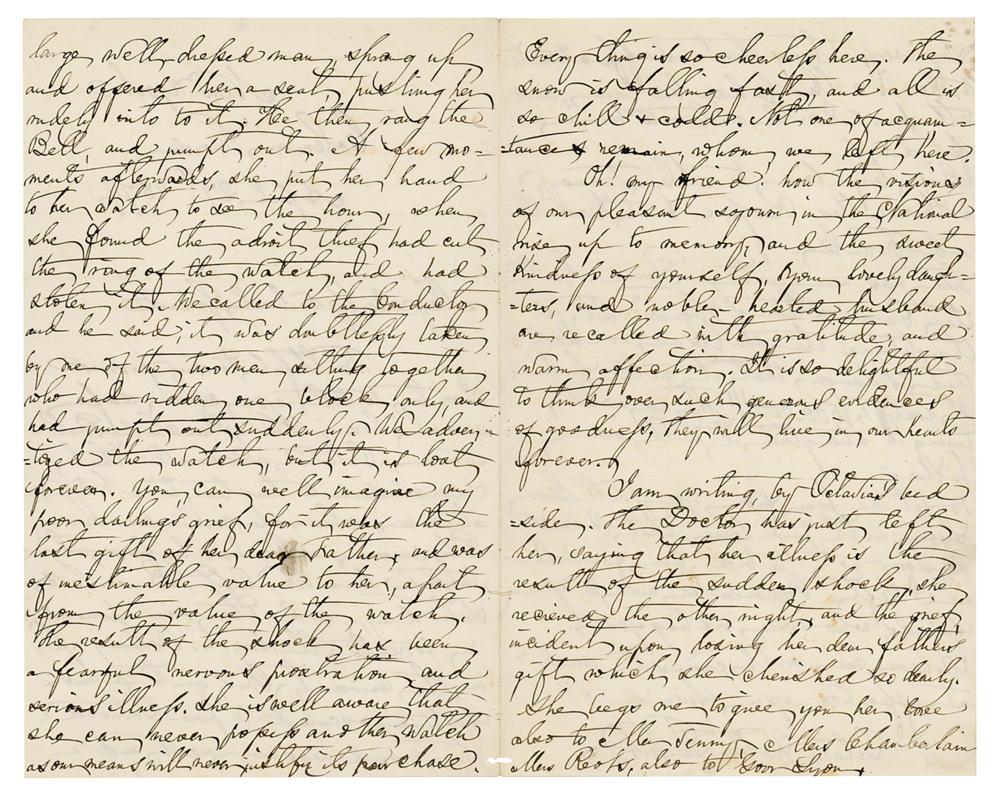 large well dressed man, sprag up
and offered her a seat, pushing her
rudely into to it. He then rang the
Bell, and jumpt out. A few mo=
ments afterwards, she put her hand
to her watch to see the hour, when
she found the adroit thief had cut
the ring of the watch, and had
stolen it. We called to the Conductor
and he said; it was doubtlessly taken
by one of the two men sitting together
who had ridden one block only, and
had jumpt out suddenly. We adver=
=tized the watch, but it is lost
forever. You can well imagine my
poor darling's grief, for it was the
last gift of her dear Father, and was
of inestimable value to her, apart
from the value of the watch.
The result of the shock has been
a fearful nervous prostration, and
serious illness. She is well aware that
she can never possess another watch
as our means will never justify its purchase.
Every thing is so cheerless here. The
snow is falling fast, and all is
so chill & cold. Not one of acquain=
=tance remain, whom we left here.
Oh! my friend. how the visions
of our pleasant sojourn in the National
rise up to memory, and the sweet
kindness of yourself, your lovely daugh=
=ters, and noble hearted husband
are recalled with gratitude, and
warm affection. It is so delightful
to think over such generous evidences
of goodness, they will live in our hearts
forever.
I am writing by Octavia's bed
=side. The Doctor has just left
her, saying that her illness is the
result of the sudden shock, she
recieved the other night, and the grief
incident upon losing her dear father's
gift which she cherished so dearly.
She begs me to give you her love
also to Miss Jenny, Mrs Chamberlain
Mrs Roots, also to Govr Lyon,